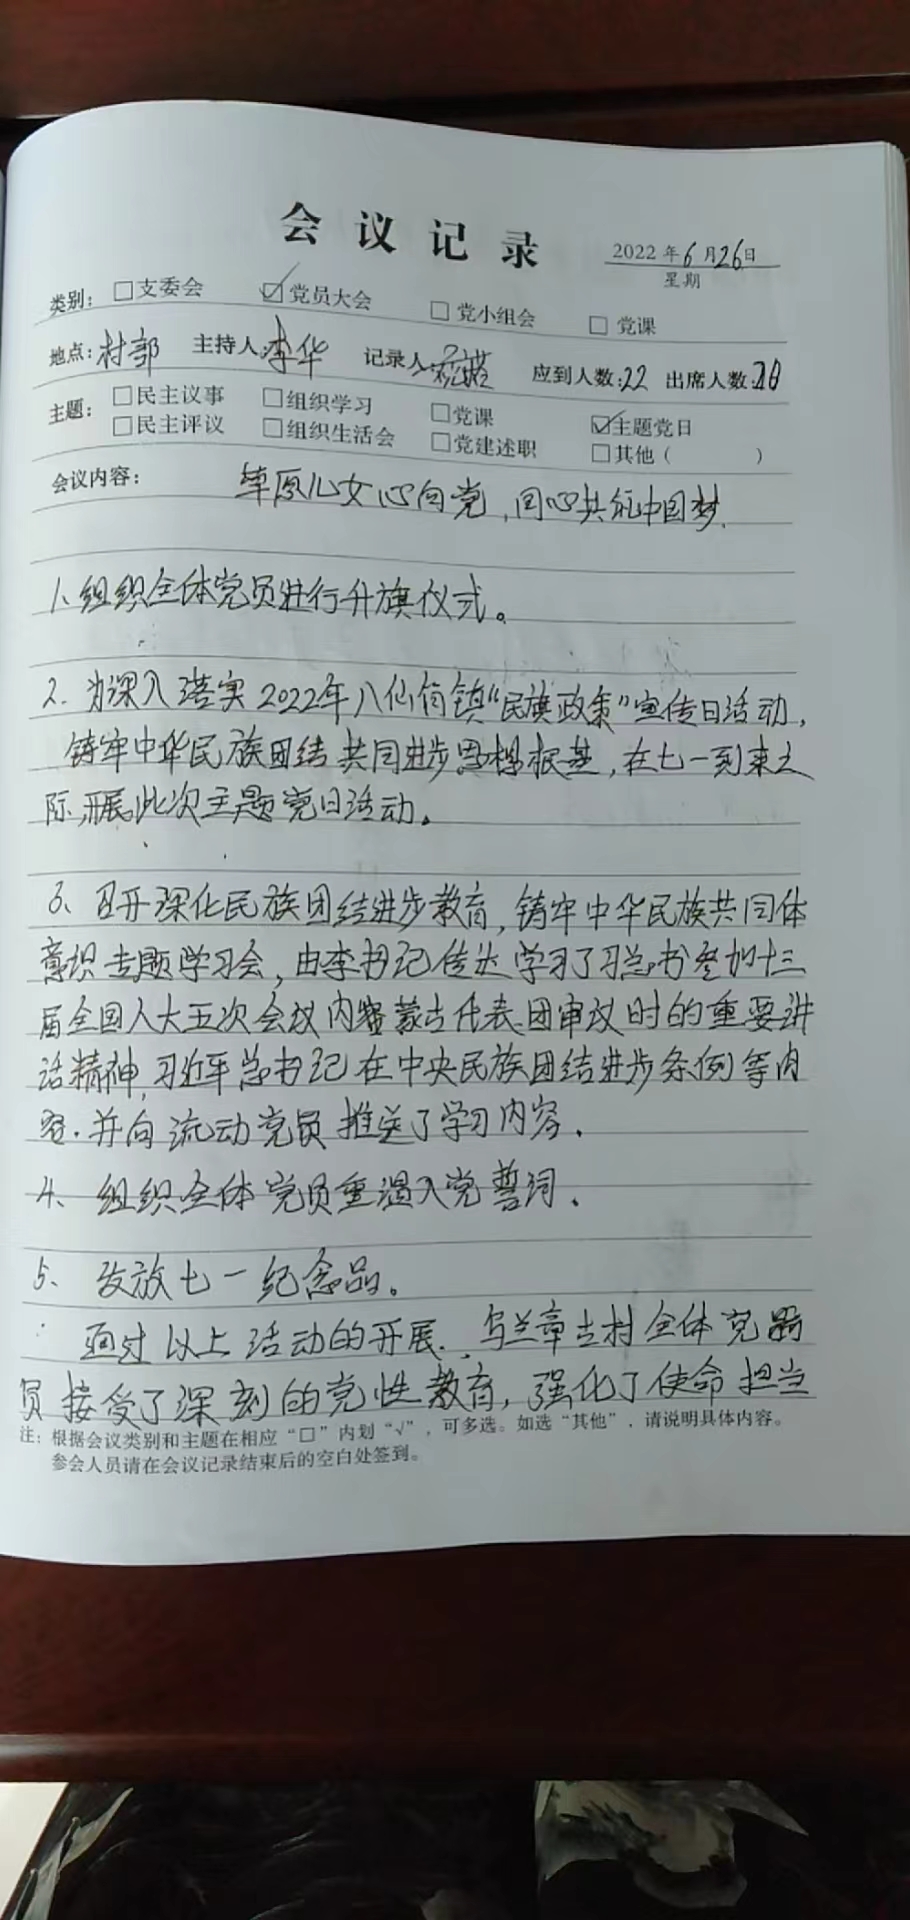 会议记录
2022年6月26日
星期
类别：□支委会 ☑党员大会 □党小组会 □党课
地点：村部 主持人：李华 记录人： 应到人数：22 出席人数：20
主题：□民主议事 □组织学习 □党课 ☑主题党日
□民主评议 □组织生活会 □党建述职 □其他（ ）
会议内容： 草原儿女心向党，同心共航中国梦.
1、组织全体党员进行升旗仪式。
2. 为深入落实2022年八仙筒镇“民族政策”宣传日活动，
铸牢中华民族团结共同进步思想根基，在七一到来之
际，开展此次主题党日活动。
3、召开深化民族团结进步教育，铸牢中华民族共同体
意识专题学习会，由李书记传达学习了习总书参加十三
届全国人大五次会议内蒙古代表团审议时的重要讲
话精神，习近平总书记在中央民族团结进步条例等内
容.并向流动党员推送了学习内容.
4、组织全体党员重温入党誓词.
5、发放七一纪念品。
通过以上活动的开展.乌兰章古村全体党
员接受了深刻的党性教育，强化了使命担当
注：根据会议类别和主题在相应“□”内划“√”，可多选。如选“其他”，请说明具体内容。
参会人员请在会议记录结束后的空白处签到。